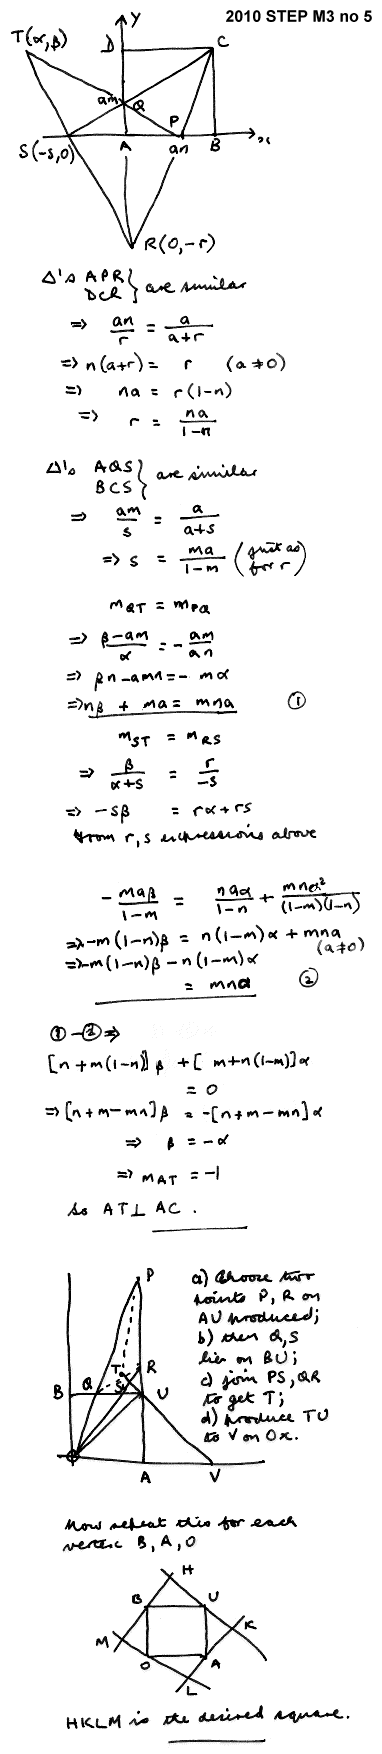 2010 STEP M3 no 5
y
T(α, β)
D
C
am
Q
P
S(-s,0)
A
an
B
x
R(0,-r)
Δ's APR
DCR } are similar
⇒ an/r = a/(a+r)
⇒ n(a+r) = r (a≠0)
⇒ na = r(1-n)
⇒ r = na/(1-n)
Δ's AQS
BCS } are similar
⇒ am/s = a/(a+s)
⇒ s = ma/(1-m) (just as for r)
m_QT = m_PQ
⇒ (β-am)/α = -am/an
⇒ βn-amn = -mα
⇒ nβ + mα = mna ①
m_ST = m_RS
⇒ β/(α+s) = r/-s
⇒ -sβ = rα+rs
from r,s expressions above
-maβ/(1-m) = naα/(1-n) + mna²/((1-m)(1-n))
⇒ -m(1-n)β = n(1-m)α + mna
(a≠0)
⇒ -m(1-n)β - n(1-m)α
= mna ②
①-②⇒
[n+m(1-n)]β + [m+n(1-m)]α
= 0
⇒ [n+m-mn]β = -[n+m-mn]α
⇒ β = -α
⇒ m_AT = -1
So AT⊥ AC.
P
T
R
B
Q
S
U
O
A
V
a) Choose two
points P, R on
AU produced;
b) then Q,S
lie on BU;
c) join PS, QR
to get T;
d) produce TU
to V on Ox.
Now repeat this for each
vertex B, A, O
H
B
U
K
M
O
A
L
HKLM is the desired square.